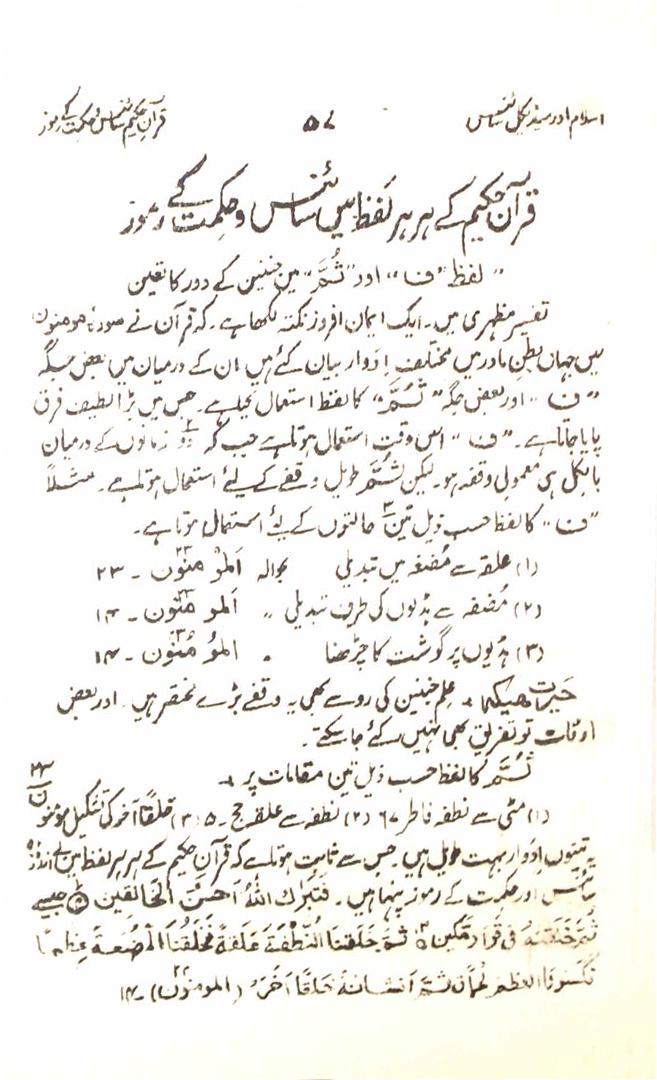 اسلام اور میڈیکل سائنس ۵۷ قرآن حکیم سائنس و حکمت کے رموز
قرآن حکیم کے ہر ہر لفظ میں سائنس و حکمت کے رموز
"لفظ "ف" اور "ثُمَّ" میں جنین کے دور کا تعین
تفسیر مظہری میں۔ ایک ایمان افروز نکتہ لکھا ہے۔ کہ قرآن نے سورۂ مومنون
میں جہاں بطنِ مادر میں مختلف ادوار بیان کئے ہیں ان کے درمیان میں بعض جگہ
"ف" اور بعض جگہ "ثُمَّ" کا لفظ استعمال کیا ہے۔ جس میں بڑا لطیف فرق
پایا جاتا ہے۔ "ف" اس وقت استعمال ہوتا ہے جب کہ دو زمانوں کے درمیان
بالکل ہی معمولی وقفہ ہو۔ لیکن ثُمَّ طویل وقفے کے لئے استعمال ہوتا ہے۔ مثلاً
"ف" کا لفظ حسب ذیل تین حالتوں کے لئے استعمال ہوتا ہے۔
(۱) علقہ سے مُضغہ میں تبدیلی بحوالہ اَلمؤمنون ۲۳ ـ ۲۳
(۲) مُضغہ سے ہڈیوں کی طرف تبدیلی 〃 اَلمومنون ۲۳ ـ ۱۴
(۳) ہڈیوں پر گوشت کا چڑھنا 〃 المؤمنون ۲۳ ـ ۱۴
حیرت ہیکہ۔ علمِ جنین کی رو سے بھی یہ وقفے بڑے مختصر ہیں۔ اور بعض
اوقات تو تفریق بھی نہیں کئے جا سکتے۔
ثُمَّ کا لفظ حسب ذیل تین مقامات پر
(۱) مٹی سے نطفہ فاطر ۶۷ (۲) نطفہ سے علقہ حج۔ ۵ (۳) خلقاً آخر کی تشکیل مؤمنون ۲۳
یہ تینوں ادوار بہت طویل ہیں۔ جس سے ثابت ہوتا ہے کہ قرآن حکیم کے ہر ہر لفظ میں بے اندازہ
سائنس اور حکمت کے رموز پنہا ہیں۔ فَتَبٰرَكَ اللّٰهُ اَحسَنُ الخَالِقِین جیسے
ثُمَّ خَلَقنَا النُّطفَةَ عَلَقَةً فَخَلَقنَا
فکسونا العظم لحماً ثُمَّ اَنشَانٰهُ خَلقًا آخَرَ (المومنون ۲۳) ـ ۱۴